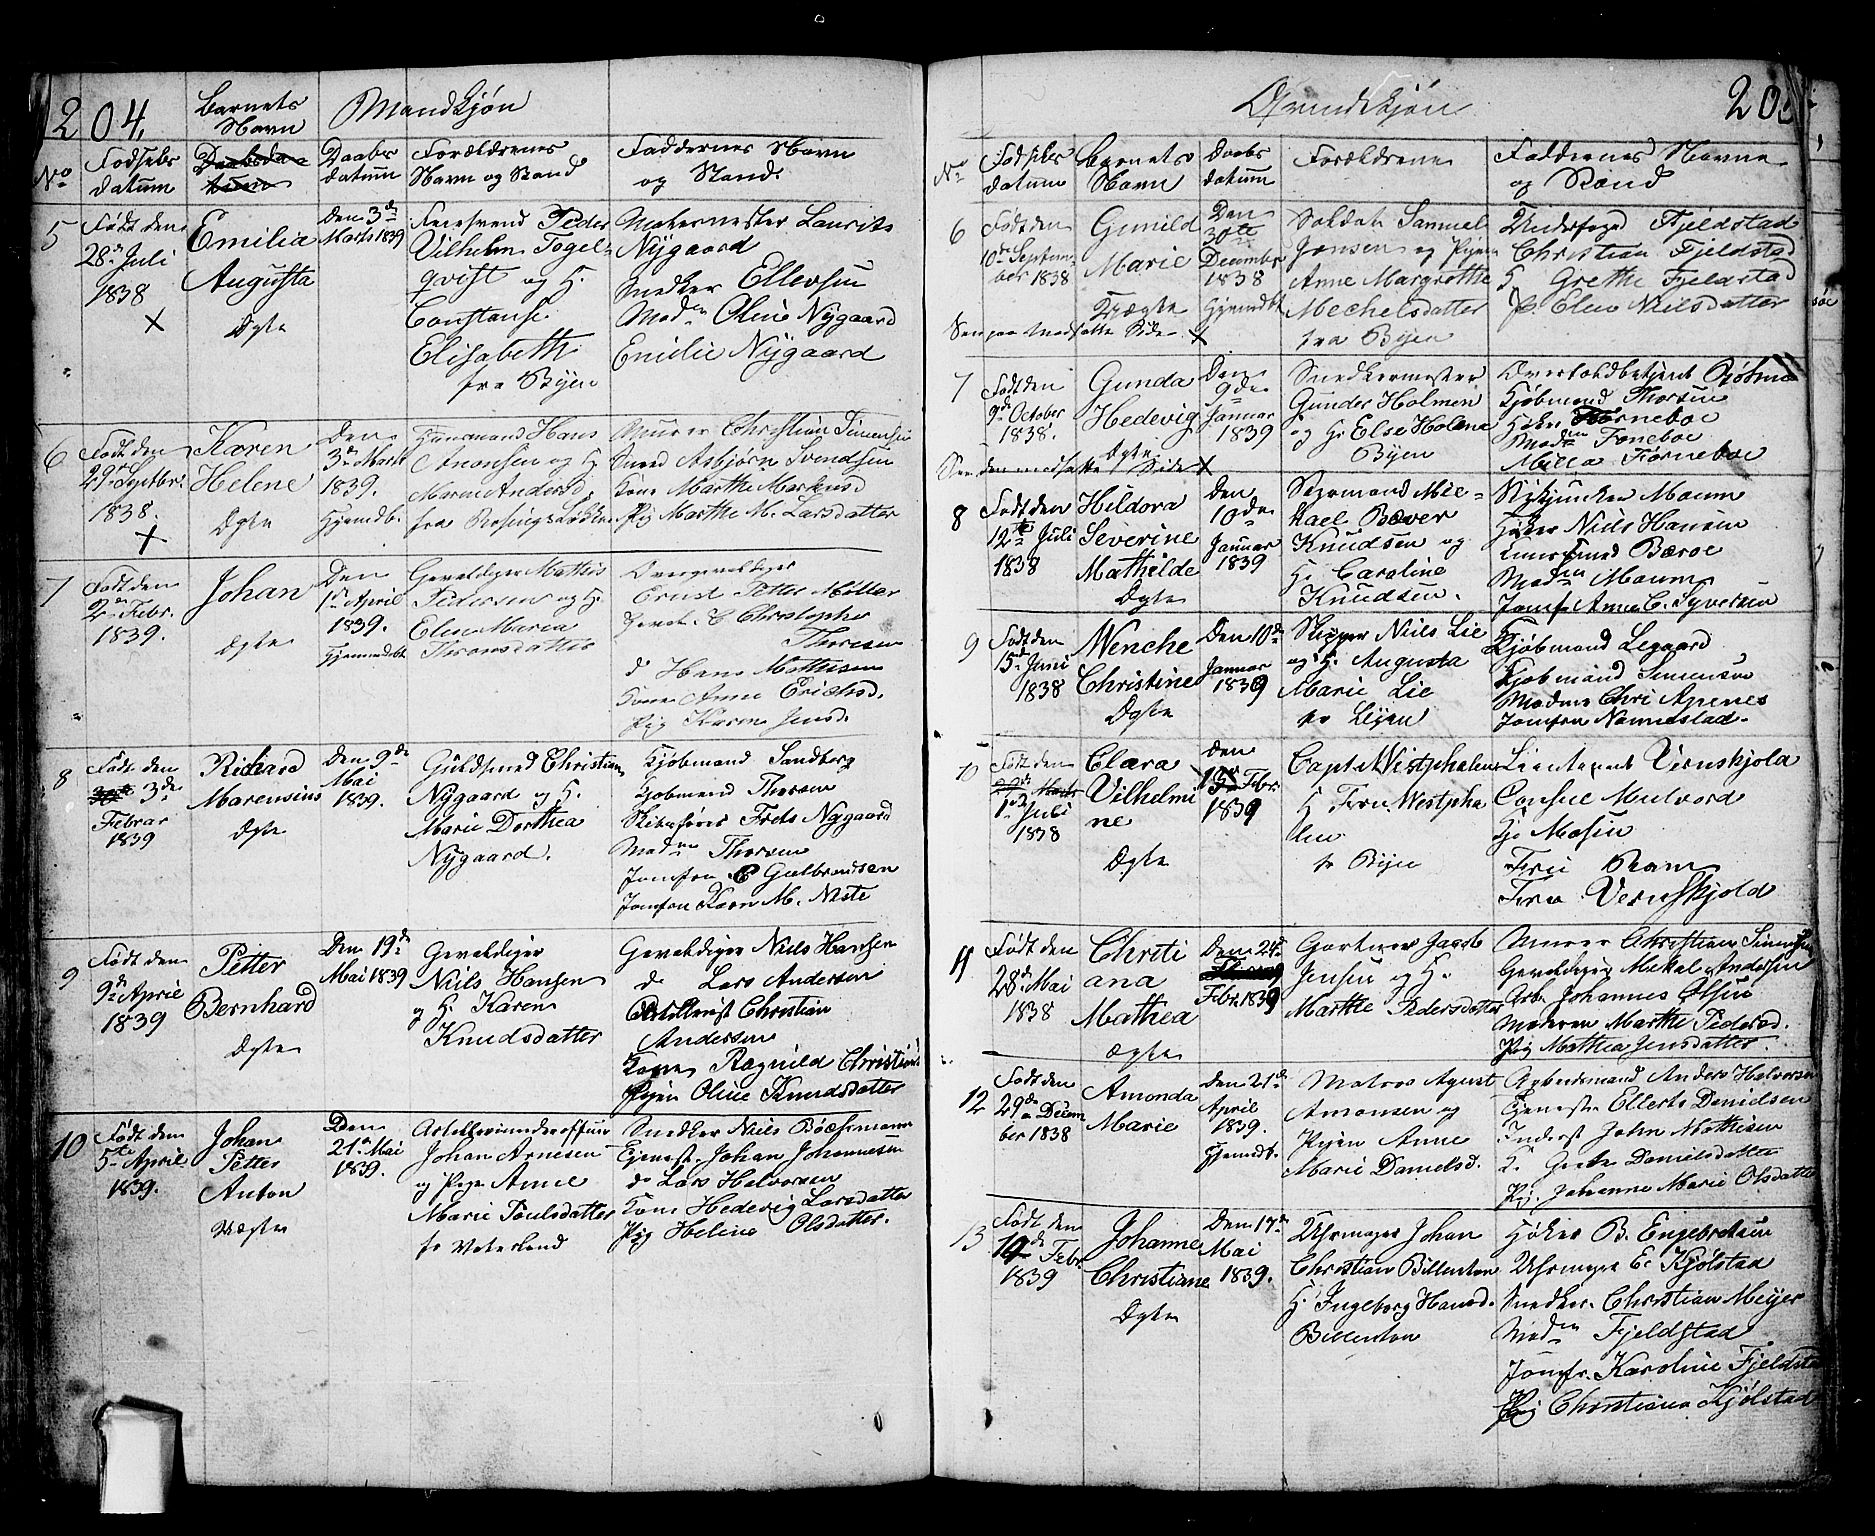 204.
Barnets Navn
Mandkjøn
No
Fødsels datum
Daabs datum
Forældrenes Navn og Stand
Faddernes Navn og Stand.
5
Født den 28de Juli 1838
Emilia Augusta
Ægte
Den 3de Marts 1839
Feiersvend Peder
Vilhelm Fogel-
qvist og H.
Constanse
Elisabeth
fra Byen
Malermester Laurits
Nygaard
Snedker Ellevsen
Maden Oline Nygaard
Emilie Nygaard
6
Født den 29de Septbr. 1838.
Karen Helene
Ægte
Den 3de Marts 1839.
Hjemdb.
Huusmand Hans
Anonsen og H.
Maren Andersd.
fra
Murer Christian Simensen
Svend Asbjørn Svendsen
Kone Marthe Markusd
Pig Marthe M. Larsdatter
7
Født den 2den Febr. 1839.
Johan
Ægte
Den 1ste April 1839.
Hjemmedbt
Gevaldiger Mathis
Pedersen og H.
Elise Maria
Overgevaldiger
Ernst Petter Møller
Christopher
Thoresen
do Hans Mathisen
Kone Anne Erichsd.
Pig Karen Jensd.
8
Født den 3de Februar 1839
Richard Marensius
Ægte
Den 9de Mai 1839.
Guldsmed Christian
Nygaard og H.
Marie Dorthea
Nygaard.
Kjøbmand Sandberg
Kjøbmand Thorsen
Frets Nygaard
Maden Thorsen
Jomfru C Gulbrandsen
Jomfru Karn M. Neste
9
Født den 9de April 1839
Petter Bernhard
Ægte
Den 19de Mai 1839
Gevaldiger
Niels Hansen
og H. Karen
Knudsdatter
Gevaldiger Niels Hansen
do Lars Andersen
Artillerist Christian
Andersen
Kone Ragnild Christians
Pigen Oline Knudsdatter
10
Født den 5te April 1839.
Johan Petter Anton
Uægte
Den 21de Mai 1839.
Artelleriunderofficeer
Johan Arnesen
og Pige Anne
Marie Poulsdatter
fr Vaterland
Snedker Niels Boehsmann
Tjenest. Johan Johannesen
do Lars Halvorsen
Kone Hedevig Larsdatter
Pig Helene Olsdatter.
Qvindekjøn
No
Fødsels datum
Barnets Navn
Daabs datum
Forældrene
Faddernes Navne
og Stand
6
Født den 10de September 1838
Gunild Marie
Uægte
Den 30te December 1838
Hjemdbt
Soldat Samuel
Jensen og Pigen
Anne Margrethe
Mechelsdatter
fra Byen
Underfoged Fjeldstad
Christian Fjeldstad
H Grethe Fjeldstad
P. Elen Nielsdatter
See paa modsatte Side X
7
Født den 9de October 1838.
Gunda Hedevig
Ægte
Den 9de Januar 1839
Snedkermester
Gunder Holmen
og H. Else Holene
Byen
Kjøbmand Thorsen
Høker Forneboe
Maden Forneboe
Milla Forneboe
See den modsatte Side X
8
Født den 12te Juli 1838
Hildora Severine Mathilde
Ægte
Den 10de Januar 1839
Michael Bæver
Knudsen og
H. Caroline
Knudsen.
Maum
Høker Niels Hansen
Bærøe
Maden Maum
Jomfr Anne C. Syversen
9
Født den 15de Juni 1838
Wenche Christine
Ægte
Den 10de Januar 1839
Skipper Niels Lie
og H. Augusta
Marie Lie
fr Byen
Kjøbmand Legaard
Kjøbmand Simensen
Madme Chri Apenes
Jomfru Nannestad.
10
Født den 1ste Juli 1838
Clara Vilhelmine
Ægte
Den 13de Febr 1839
Capt. Westphalen
H Fru Westphalen
fr Byen
Lieutenant Vernskjold
Consul Mulvard
Hr Mosin
Frue Ram
Frue Vernskjold
11
Født den 28de Mai 1838
Christiana Mathea
Ægte
Den 24de Febr 1839
Gartner Jacob
Jensen og H.
Marthe Pedersdatter
Murer Christian Simensen
Gevaldiger Mikal Andersen
Arb. Johannes Olsen
Marthe Pedersd.
Pig Mathea Jensdatter.
12
Født den 29de December 1838
Amonda Marie
Den 21de April 1839.
Hjemdbt.
Matros Agust
Amonsen og
Pigen Anne
Marie Danielsd.
Arbeidsmand Anders Halvorsen
Tjenest. Ellert Danielsen
Inderst John Mathisen
K. Grete Danielsdatter
Pig. Johanne Marie Olsdatter
13
Født den Febr. 1839
Johanne Christiane
Ægte
Den 17de Mai 1839.
Uhrmager Johan
Christian Billenton
H. Ingeborg Hansd.
Billenton
Høker B. Engebretsen
Uhrmager E. Kjølstad
Snedker Christian Meyer
Maden Fjeldstad
Jomfr. Karoline Fjeldsta
Pig Christiane Kjølstad